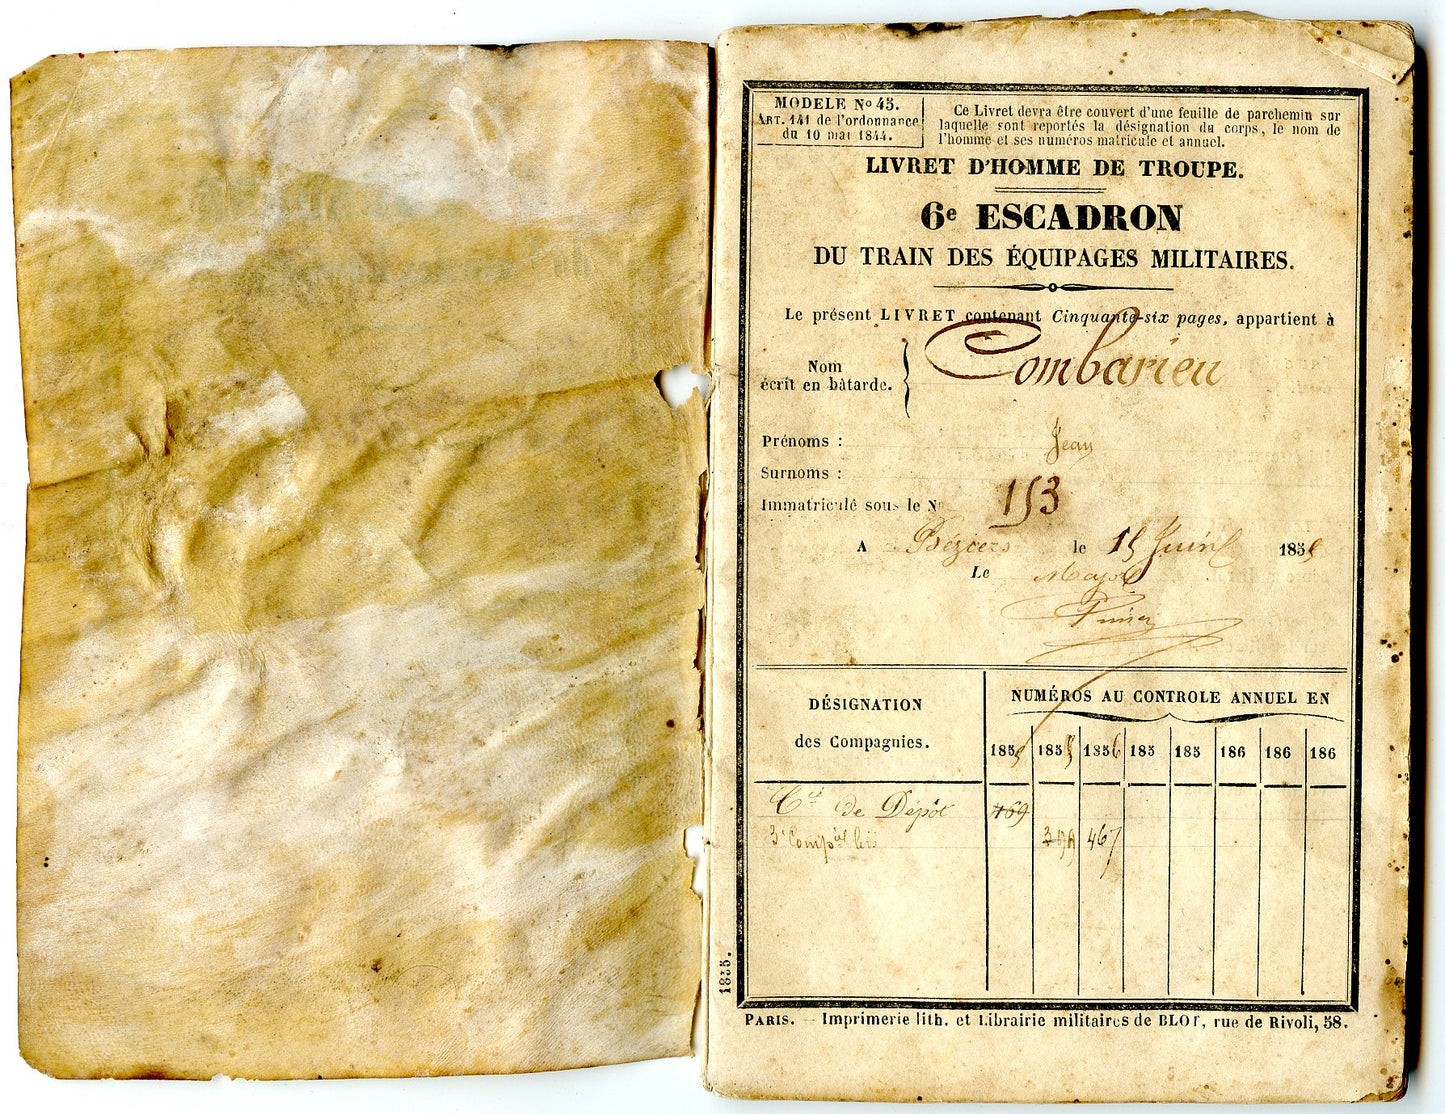 MODÈLE No 45.
ART. 141 de l'ordonnance
du 10 mai 1844.
Ce Livret devra être couvert d'une feuille de parchemin sur
laquelle sont reportés la désignation du corps, le nom de
l'homme et ses numéros matricule et annuel.
LIVRET D'HOMME DE TROUPE.
6e ESCADRON
DU TRAIN DES ÉQUIPAGES MILITAIRES.
Le présent LIVRET contenant Cinquante-six pages, appartient à
Nom
écrit en bâtarde.
Combarieu
Prénoms : Jean
Surnoms :
Immatriculé sous le No 153
A Béziers le 15 Juin 1855
Le Major
DÉSIGNATION
des Compagnies.
NUMÉROS AU CONTROLE ANNUEL EN
1855 1855 1856 185 185 186 186 186
Cie de Dépôt 769
3e Compie bis 467
1855.
PARIS. — Imprimerie lith. et Librairie militaires de BLOT, rue de Rivoli, 58.